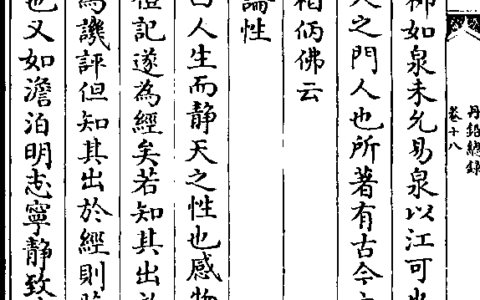 丹鉛總録
卷十八
柳如泉未允易泉以江可也
人之門人也所著有古今
柏炳佛云
論性
曰人生而靜天之性也感物
禮記遂為經矣若知其出於
為譏評但知其出於經則
也又如澹泊明志寧靜致